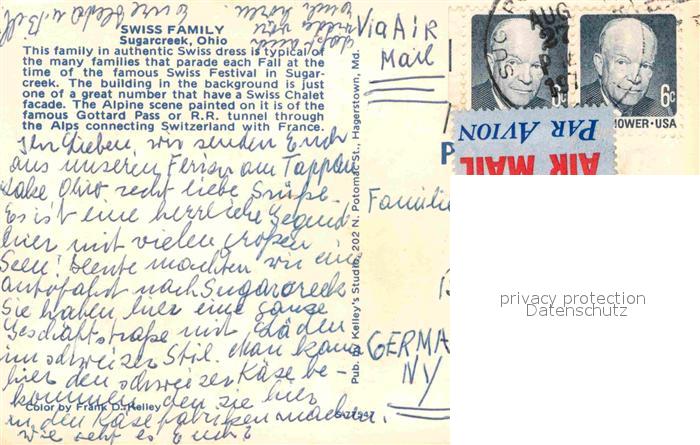 SWISS FAMILY
Sugarcreek, Ohio
This family in authentic Swiss dress is typical of
the many families that parade each Fall at the
time of the famous Swiss Festival in Sugar-
creek. The building in the background is just
one of a great number that have a Swiss Chalet
facade. The Alpine scene painted on it is of the
famous Gottard Pass or R.R. tunnel through
the Alps connecting Switzerland with France.
Ihr Lieben, wir senden Euch
aus unseren Ferien am Tappan
Lake Ohio recht liebe Grüße.
Es ist eine herrliche Gegend
hier mit vielen großen
Seen! Heute machten wir eine
Autofahrt nach Sugarcreek
Sie haben hier eine ganze
Geschäftstraße mit Läden
im schweizer Stil. Man kann
hier den schweizer Käse be-
kommen, den sie hier
in den Käsefabriken machen.
Wie geht es Euch?
Color by Frank D. Kelley
Pub. by Kelley's Studio, 202 N. Potomac St., Hagerstown, Md.
Via AIR
Mail
AUG
27
6c
6c
PAR AVION
AIR MAIL
Familie
GERMA
NY
privacy protection
Datenschutz